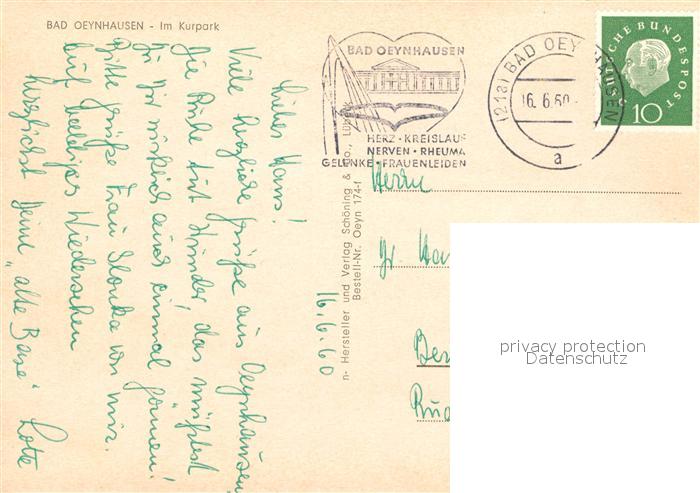 BAD OEYNHAUSEN - Im Kurpark
16.6.60
Liebes Hans!
Viele herzliche Grüße aus Oeynhausen,
die Ruhe tut Wunder, das müßtest
Du Dir wirklich auch einmal gönnen!
Bitte grüße Frau Slonka von mir.
Auf baldiges Wiedersehen
herzlichst Deine "alte Base" Lotte
n- Hersteller und Verlag Schöning & Co., Lübeck
Bestell-Nr. Oeyn 174-1
BAD OEYNHAUSEN
HERZ · KREISLAUF
NERVEN · RHEUMA
GELENKE · FRAUENLEIDEN
(21a) BAD OEYNHAUSEN
16.6.60
a
DEUTSCHE BUNDESPOST
10
Herrn
Dr.
privacy protection
Datenschutz